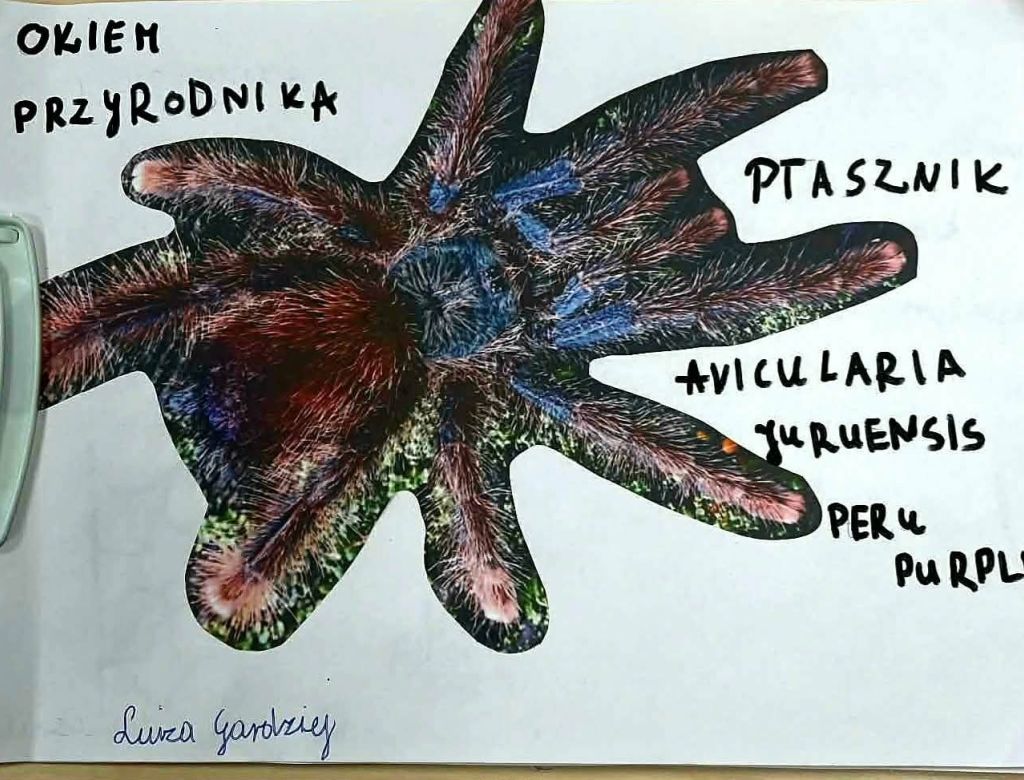 OKIEM
PRZYRODNIKA
PTASZNIK
AVICULARIA
JURUENSIS
PERU
PURPL
Luiza Gardziej